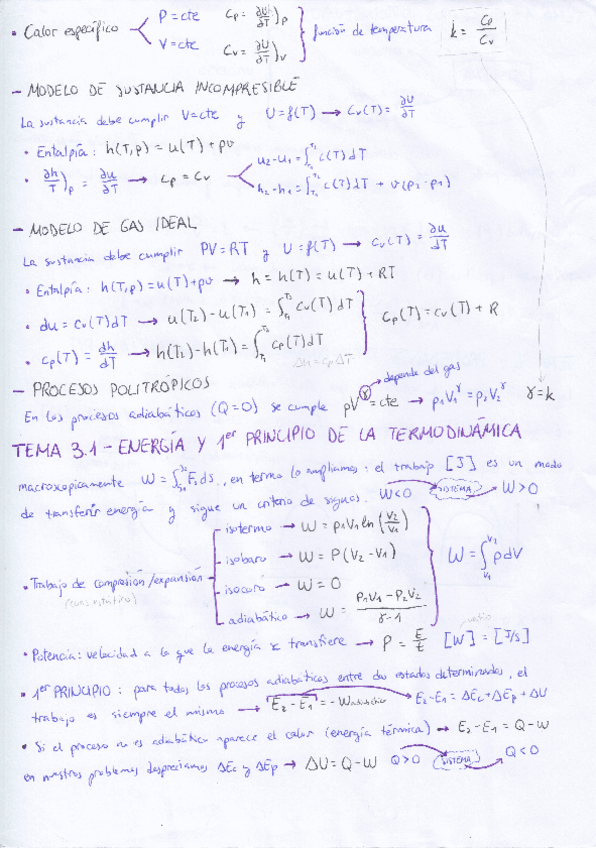 • Calor específico P=cte Cp = ∂U/∂T)p
V=cte Cv = ∂U/∂T)v función de temperatura k = Cp/Cv
- MODELO DE SUSTANCIA INCOMPRESIBLE
La sustancia debe cumplir V=cte y U=f(T) → Cv(T) = ∂U/∂T
• Entalpía: h(T,p) = u(T) + pv
• ∂h/T)p = ∂u/∂T → Cp = Cv u2-u1 = ∫T1T2 c(T)dT
h2-h1 = ∫T1T2 c(T)dT + v(p2-p1)
- MODELO DE GAS IDEAL
La sustancia debe cumplir PV=RT y U=f(T) → Cv(T) = ∂u/dT
• Entalpía: h(T,p)=u(T)+pv → h = h(T) = u(T) + RT
• du = Cv(T)dT → u(T2)-u(T1) = ∫T1T2 Cv(T)dT
Cp(T) = Cv(T) + R
• Cp(T) = dh/dT → h(T2)-h(T1) = ∫T1T2 Cp(T)dT
Δh = Cp ΔT
- PROCESOS POLITRÓPICOS
depende del gas
En los procesos adiabáticos (Q=0) se cumple pV^γ = cte → p1V1^γ = p2V2^γ γ=k
TEMA 3.1 - ENERGÍA Y 1er PRINCIPIO DE LA TERMODINÁMICA
macroscopicamente W = ∫s1s2 F ds, en termo lo ampliamos: el trabajo [J] es un modo
de transferir energía y sigue un criterio de signos. W<0 SISTEMA W>0
isotermo → W = p1V1 ln(V2/V1)
isobaro → W = P(V2-V1)
• Trabajo de compresión/expansión W = ∫V1V2 pdV
isocoro → W = 0
adiabático → W = P1V1-P2V2/γ-1
• Potencia: velocidad a la que la energía se transfiere → P = E/t [W] = [J/s]
• 1er PRINCIPIO: para todos los procesos adiabáticos entre dos estados determinados, el
trabajo es siempre el mismo → E2-E1 = -Wadiabático E2-E1 = ΔEc+ΔEp+ΔU
• Si el proceso no es adiabático aparece el calor (energía térmica) → E2-E1 = Q-W
en nuestros problemas despreciamos ΔEc y ΔEp → ΔU = Q-W Q>0 SISTEMA Q<0